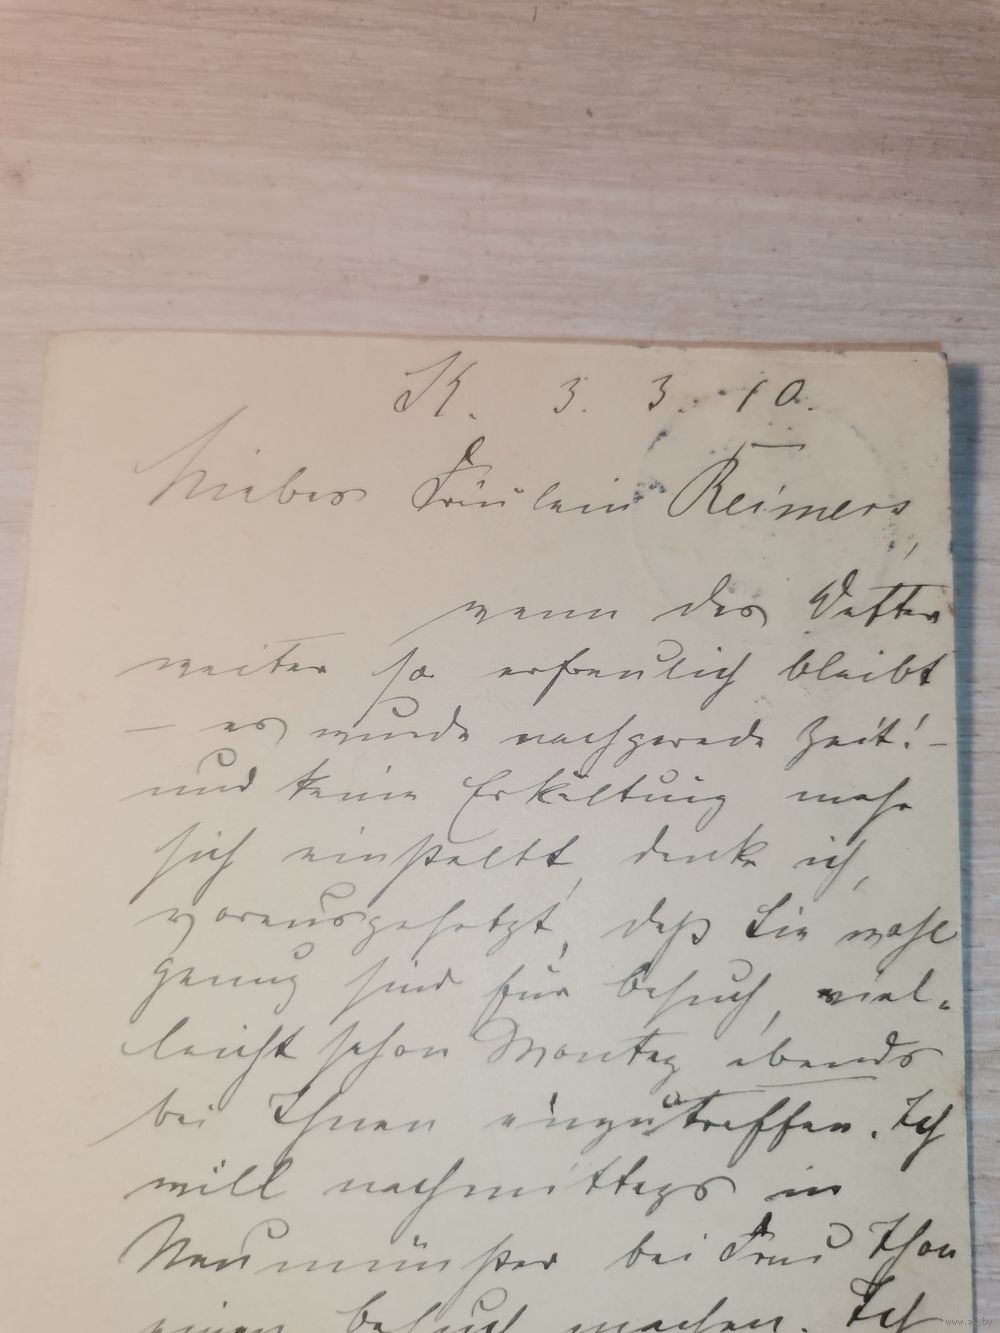 K. 3. 3. 10.
Liebes Fräulein Reimers,
wenn das Wetter
weiter so erfreulich bleibt
– es wurde nachgerade Zeit! –
und keine Erkältung mehr
sich einstellt, denke ich,
vorausgesetzt, daß Sie wohl
genug sind für Besuch, viel-
leicht schon Montag abends
bei Ihnen einzutreffen. Ich
will nachmittags in
Neumünster bei Frau Thon
einen Besuch machen. Ich
www.ay.by